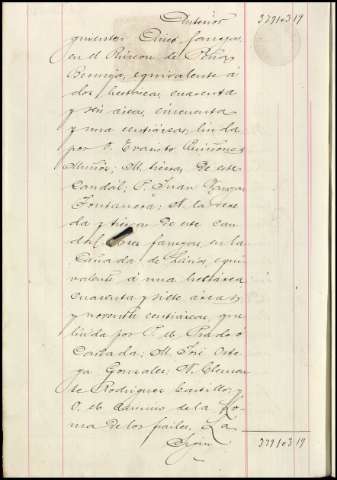 Anterior 379103 19
quientes Cinco fanegas,
en el Rincon de Peña
Bermeja, equivalente á
dos hectáreas, cuarenta
y seis áreas, cincuenta
y una centiáreas, linda
por S. Evaristo Quiñones
Muñoz; M. tierras de este
caudal; P. Juan
Fontanera; N. la vere
da y tierras de este cau
dal. Tres fanegas en la
Cañada de equi
valente á una hectárea
cuarenta y siete áreas
y noventa centiáreas, que
linda por S. el Prado ó
Cañada; M. José Orte
ga Gonzalez; N. Clemen
te Rodriguez Castillo, y
P. el camino de la Lo
ma de los frailes. La
379103 19